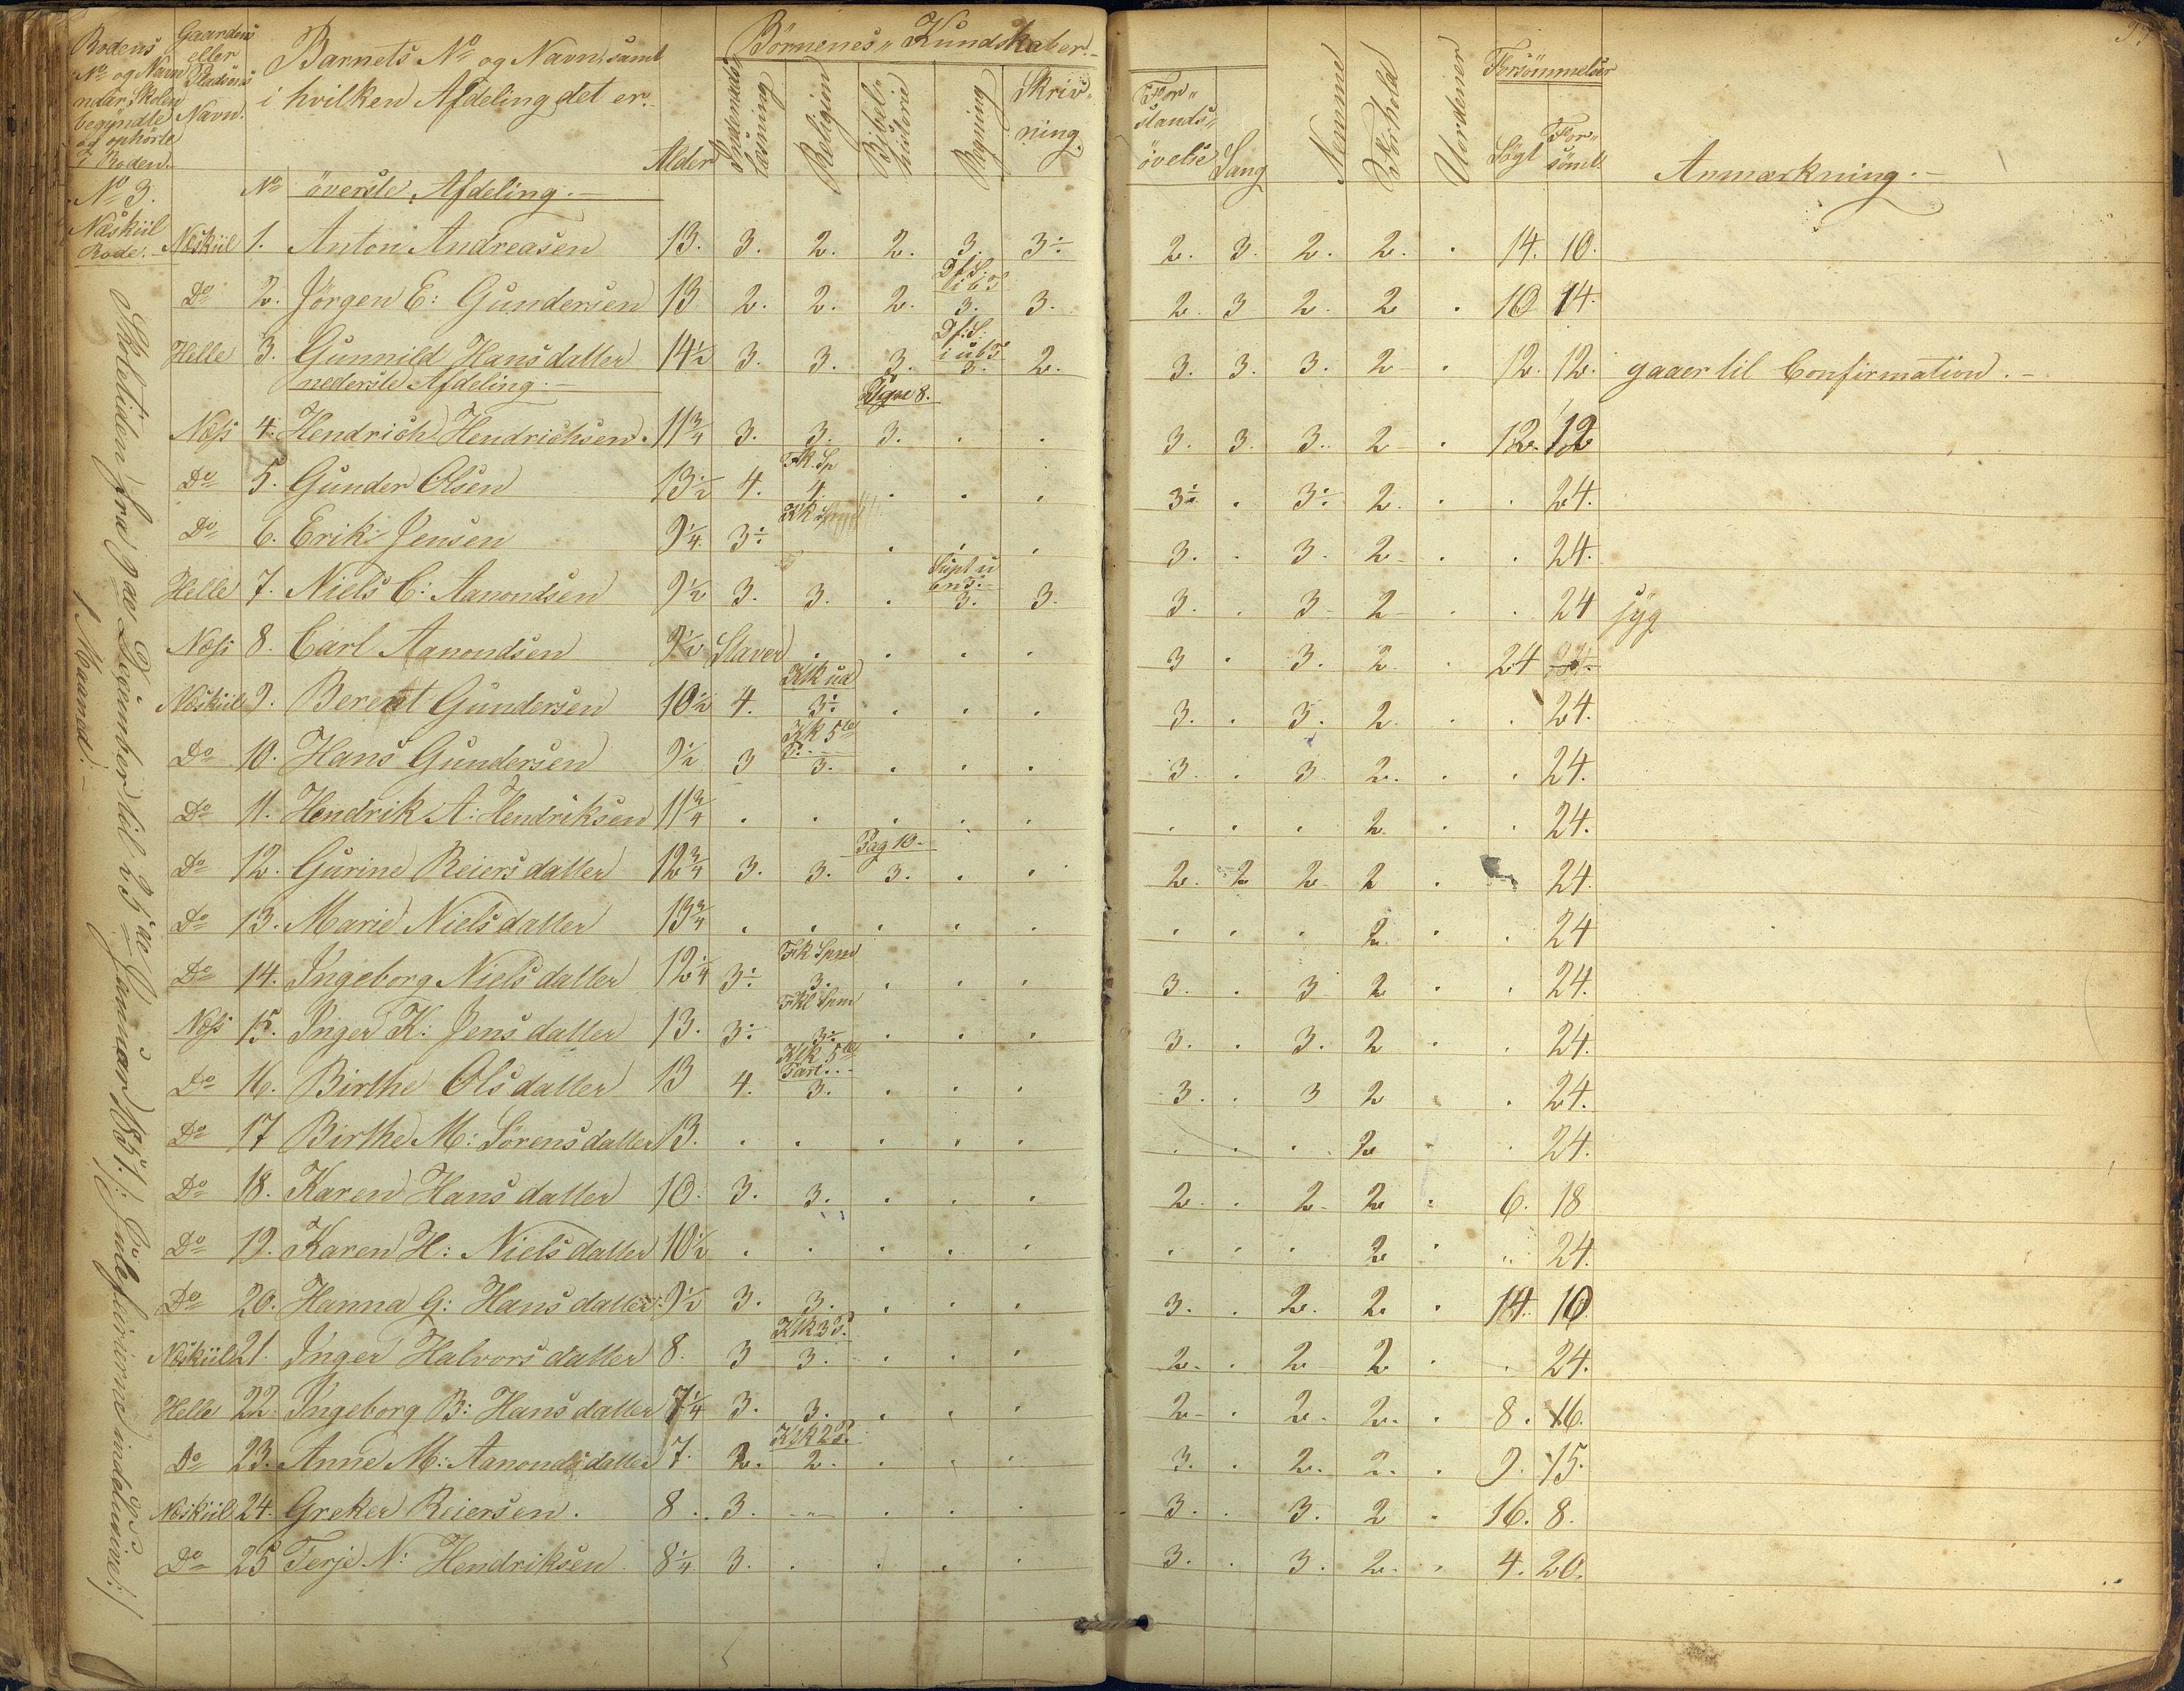 Rodens Nº og Navn naar Skolen begyndte og ophørte i Roden.
Gaardens eller Pladsens Navn.
Barnets Nº og Navn, samt i hvilken Afdeling det er.
Alder
Börnenes Kundskaber.
Indenadslæsning
Religion
Bibelhistorie
Regning
Skrivning.
Forstandsövelse
Sang
Nemme
Forhold
Uordener
Forsömmelser
Sögt
Forsömt
Anmærkning.
Nº 3. Nº överste Afdeling.
Næskiil Rode. Næskiil 1. Anton Andreasen 13. 3. 2. 2. 3. 3÷ 2. 3. 2. 2. . 14. 10.
Dº 2. Jörgen E: Gundersen 13 2. 2. 2. 3. 3. 2. 3 2. 2 . 10 14.
Helle 3. Gunnild Hansdatter 14½ 3. 3. 3. 3. 2. 3. 3. 3. 2 . 12. 12. gaaer til Confirmation.
nederste Afdeling.
Næss 4. Hendrich Hendrichsen. 11¾ 3. 3. 3. . . 3. 3. 3. 2 . 12. 12
Dº 5. Gunder Olsen 13½ 4. 4. . . . 3÷ . 3÷ 2. . . 24.
Dº 6. Erik Jensen 9¼ 3÷ . . . 3. . 3. 2 . . 24.
Helle 7. Niels C: Aanondsen 9½ 3. 3. . 3. 3. 3. . 3 2 . . 24 syg
Næss 8. Carl Aanondsen 9½ Staver . . . . 3 . 3. 2. . 24
Klk ud
Næskiil 9. Berent Gundersen 10½ 4. 3÷ . . . 3. . 3. 2. . . 24.
Dº 10. Hans Gundersen 9½ 3 3. . . . 3. . 3 2. . . 24.
Dº 11. Hendrik A: Hendriksen 11¾ . . . . . . . . 2 . . 24.
Pag 10
Dº 12. Gurine Reiersdatter 12¾ 3. 3. 3. . . 2. 2 2 2 . 24.
Dº 13. Marie Nielsdatter 13¾ . . . . . . . . 2. . . 24
Dº 14. Ingeborg Nielsdatter 12¼ 3÷ 3. . . . 3. . 3 2 . . 24.
Næss 15. Inger K: Jensdatter 13. 3÷ 3÷ . . . 3. . 3. 2 . . 24.
Dº 16. Birthe Olsdatter 13 4. 3. . . . 3. . 3 2 . . 24.
Dº 17 Birthe M: Sörensdatter 13. . . . . . . . . 2 . 24.
Dº 18. Karen Hansdatter 10. 3. 3. . . . 2. . 2. 2 . 6. 18
Dº 19. Karen H: Nielsdatter 10½ . . . . . . . . 2 . . 24.
Dº 20. Hanna G: Hansdatter 9½ 3. 3. . . . 3. . 2. 2. . 14. 10
Næskiil 21. Inger Halvorsdatter 8. 3 3. . . . 2. . 2 2 . . 24.
Helle 22. Ingeborg B: Hansdatter 7¼ 3. 3. . . . 2 . 2. 2. . 8. 16.
Dº 23. Anne M: Aanondsdatter 7. 2. 2. . . . 3. . 2. 2. . 9. 15.
Næskiil 24. Greker Reiersen. 8. 3. . . . 3. . 3. 2 . 16. 8.
Dº 25 Terje N: Hendriksen 8¼ 3. . . . . 3. . 3. 2. . 4. 20.
Skoletiden fra 9de December til 25de Januar 1851. Juleferierne inclusive.
1 Maaned.